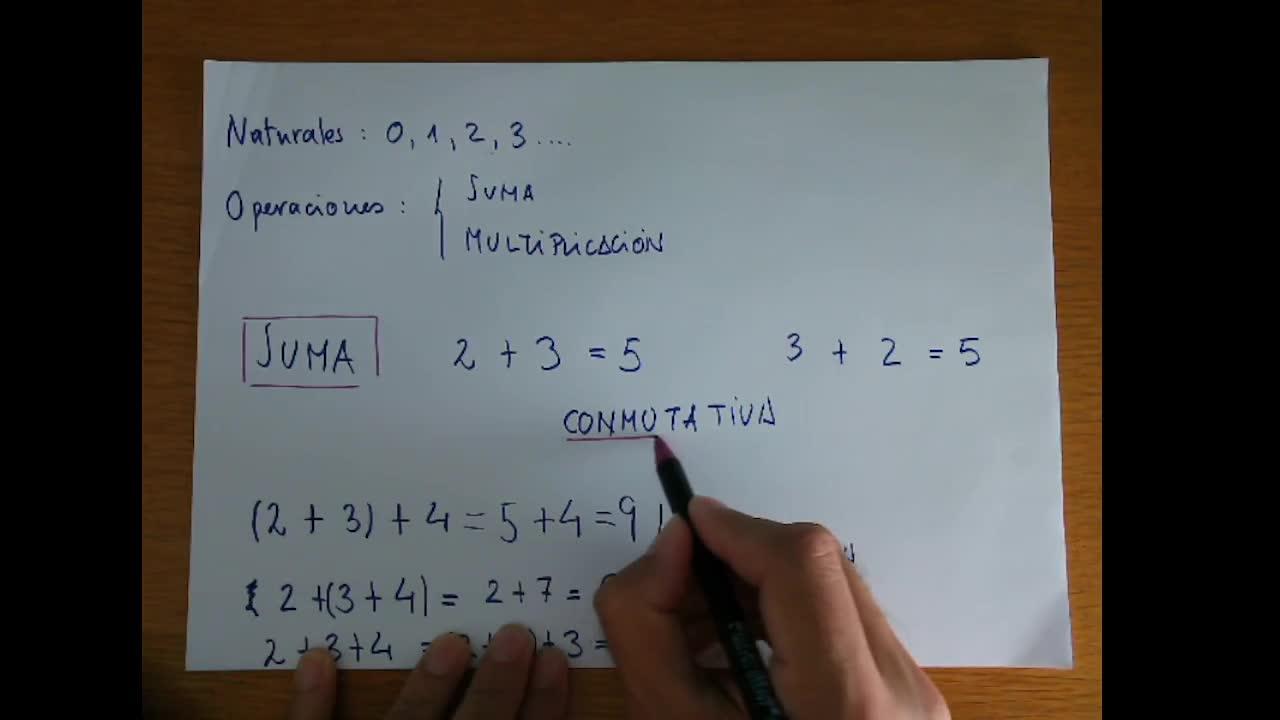 Naturales : 0, 1, 2, 3 ....
Operaciones : { SUMA
MULTIPLICACIÓN
SUMA 2 + 3 = 5 3 + 2 = 5
CONMUTATIVA
(2 + 3) + 4 = 5 + 4 = 9
2 + (3 + 4) = 2 + 7 =
2 + 3 + 4 = + 3 =